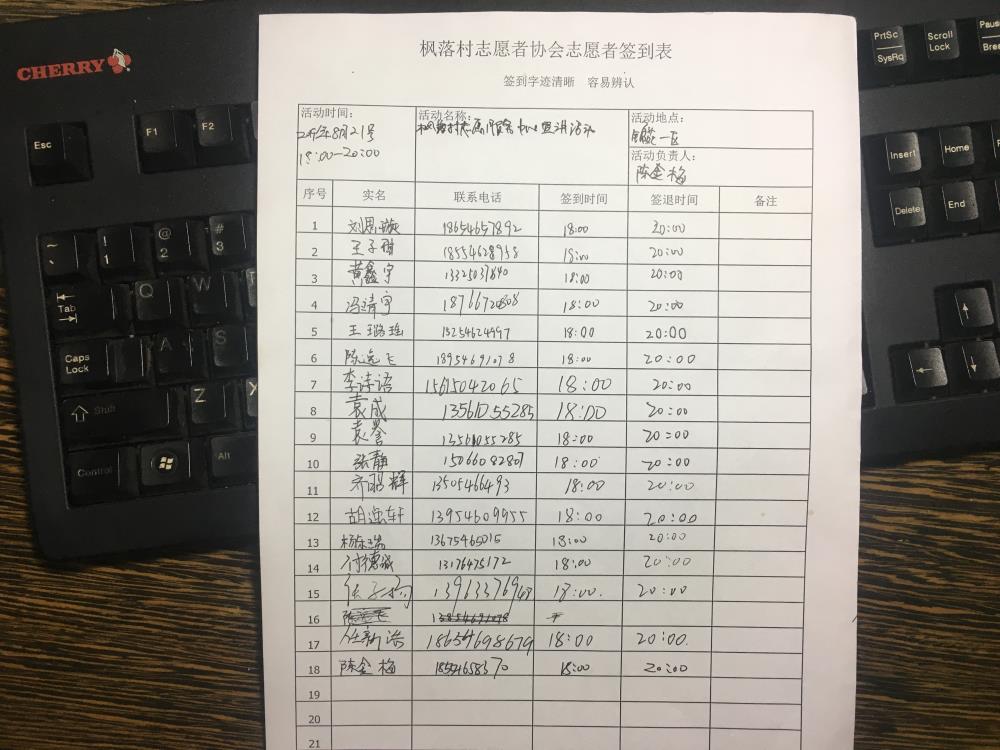 CHERRY
Esc
F1
F2
PrtSc
SysRq
Scroll
Lock
Insert
Home
Delete
End
Tab
Q
W
Caps
Lock
A
S
Shift
Z
X
Control
Alt
枫落村志愿者协会志愿者签到表
签到字迹清晰 容易辨认
活动时间:
8月21号
18:00-20:00
活动名称:
活动地点:
一区
活动负责人:
陈金梅
序号 实名 联系电话 签到时间 签退时间 备注
1 刘思璇 18654657892 18:00 20:00
2 王子甜 18554628958 18:00 20:00
3 黄鑫宇 18:00 20:00
4 冯靖宇 18:00 20:00
5 王璐瑶 15254624997 18:00 20:00
6 陈逸飞 18954691078 18:00 20:00
7 李诗语 15615042065 18:00 20:00
8 袁成 13561055285 18:00 20:00
9 袁誉 13561055285 18:00 20:00
10 张静 15066082807 18:00 20:00
11 齐 辉 13505466493 18:00 20:00
12 胡 轩 13954609955 18:00 20:00
13 杨 瑞 13675465015 18:00 20:00
14 付德诚 13176475172 18:00 20:00
15 任子 18:00. 20:00
16
17 任新浩 18654698679 18:00 20:00.
18 陈金梅 18:00 20:00
19
20
21